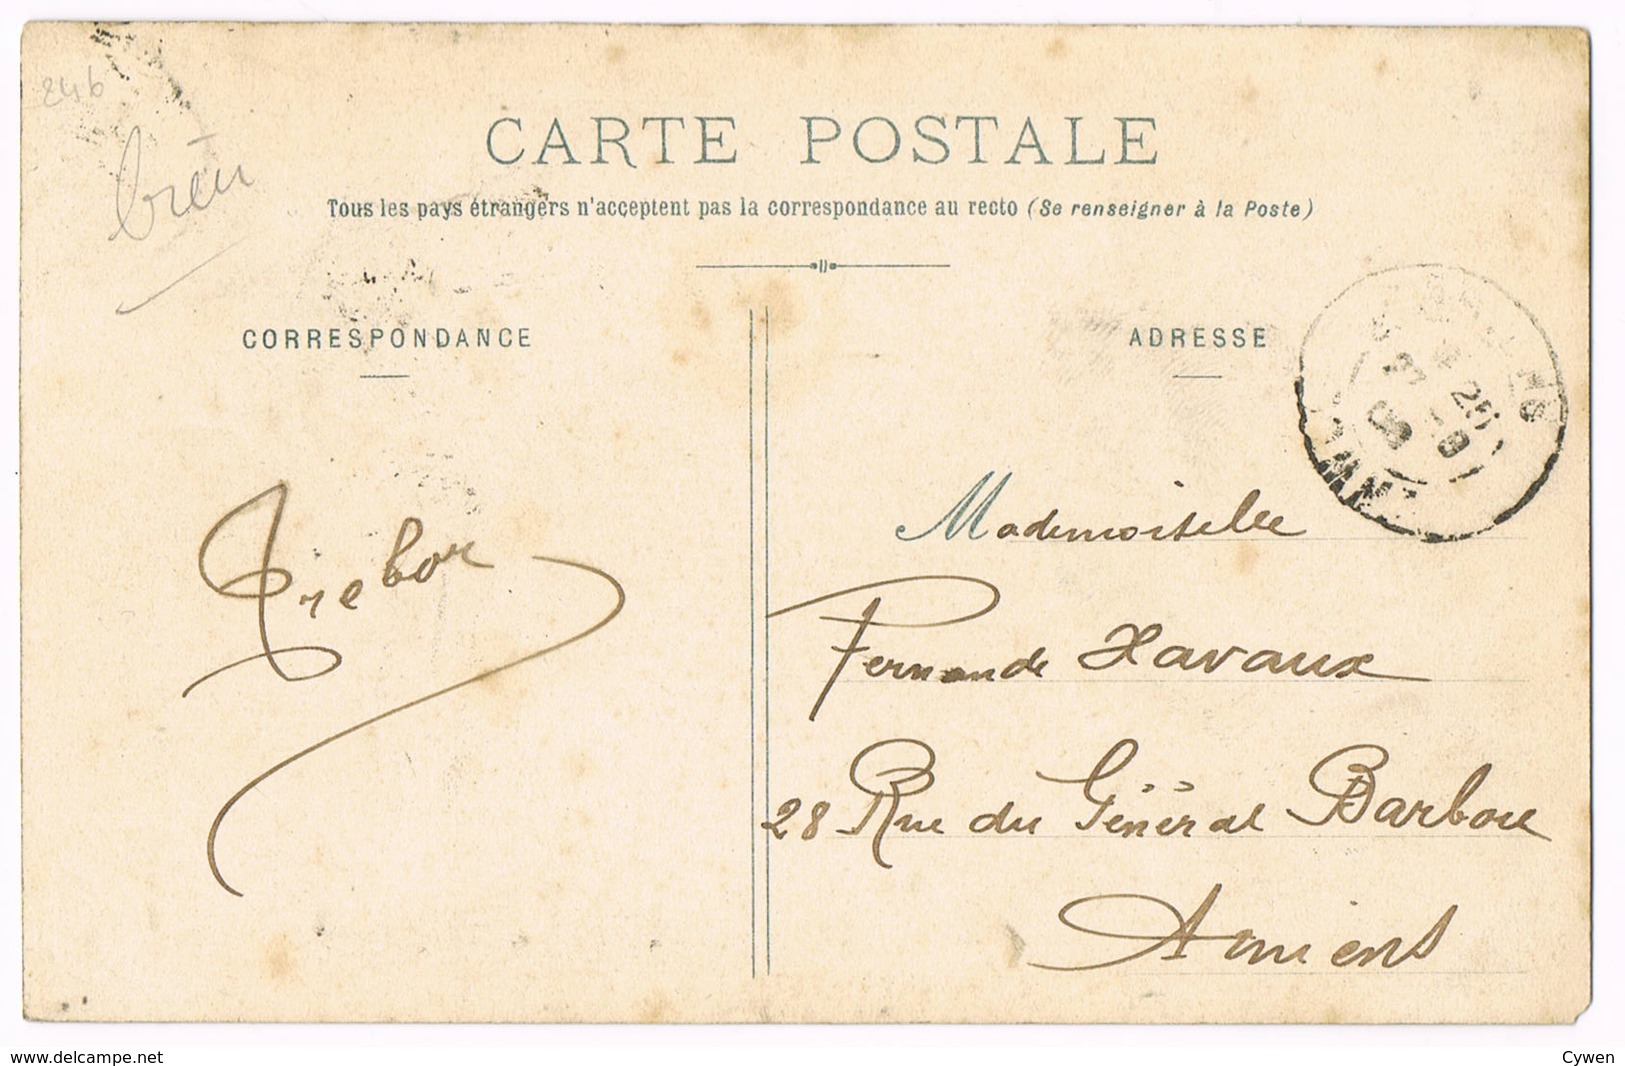 246
CARTE POSTALE
Tous les pays étrangers n'acceptent pas la correspondance au recto (Se renseigner à la Poste)
CORRESPONDANCE
ADRESSE
Trebor
Mademoiselle
Fernande Havaux
28 Rue du Général Barbou
Amiens
www.delcampe.net
Cywen